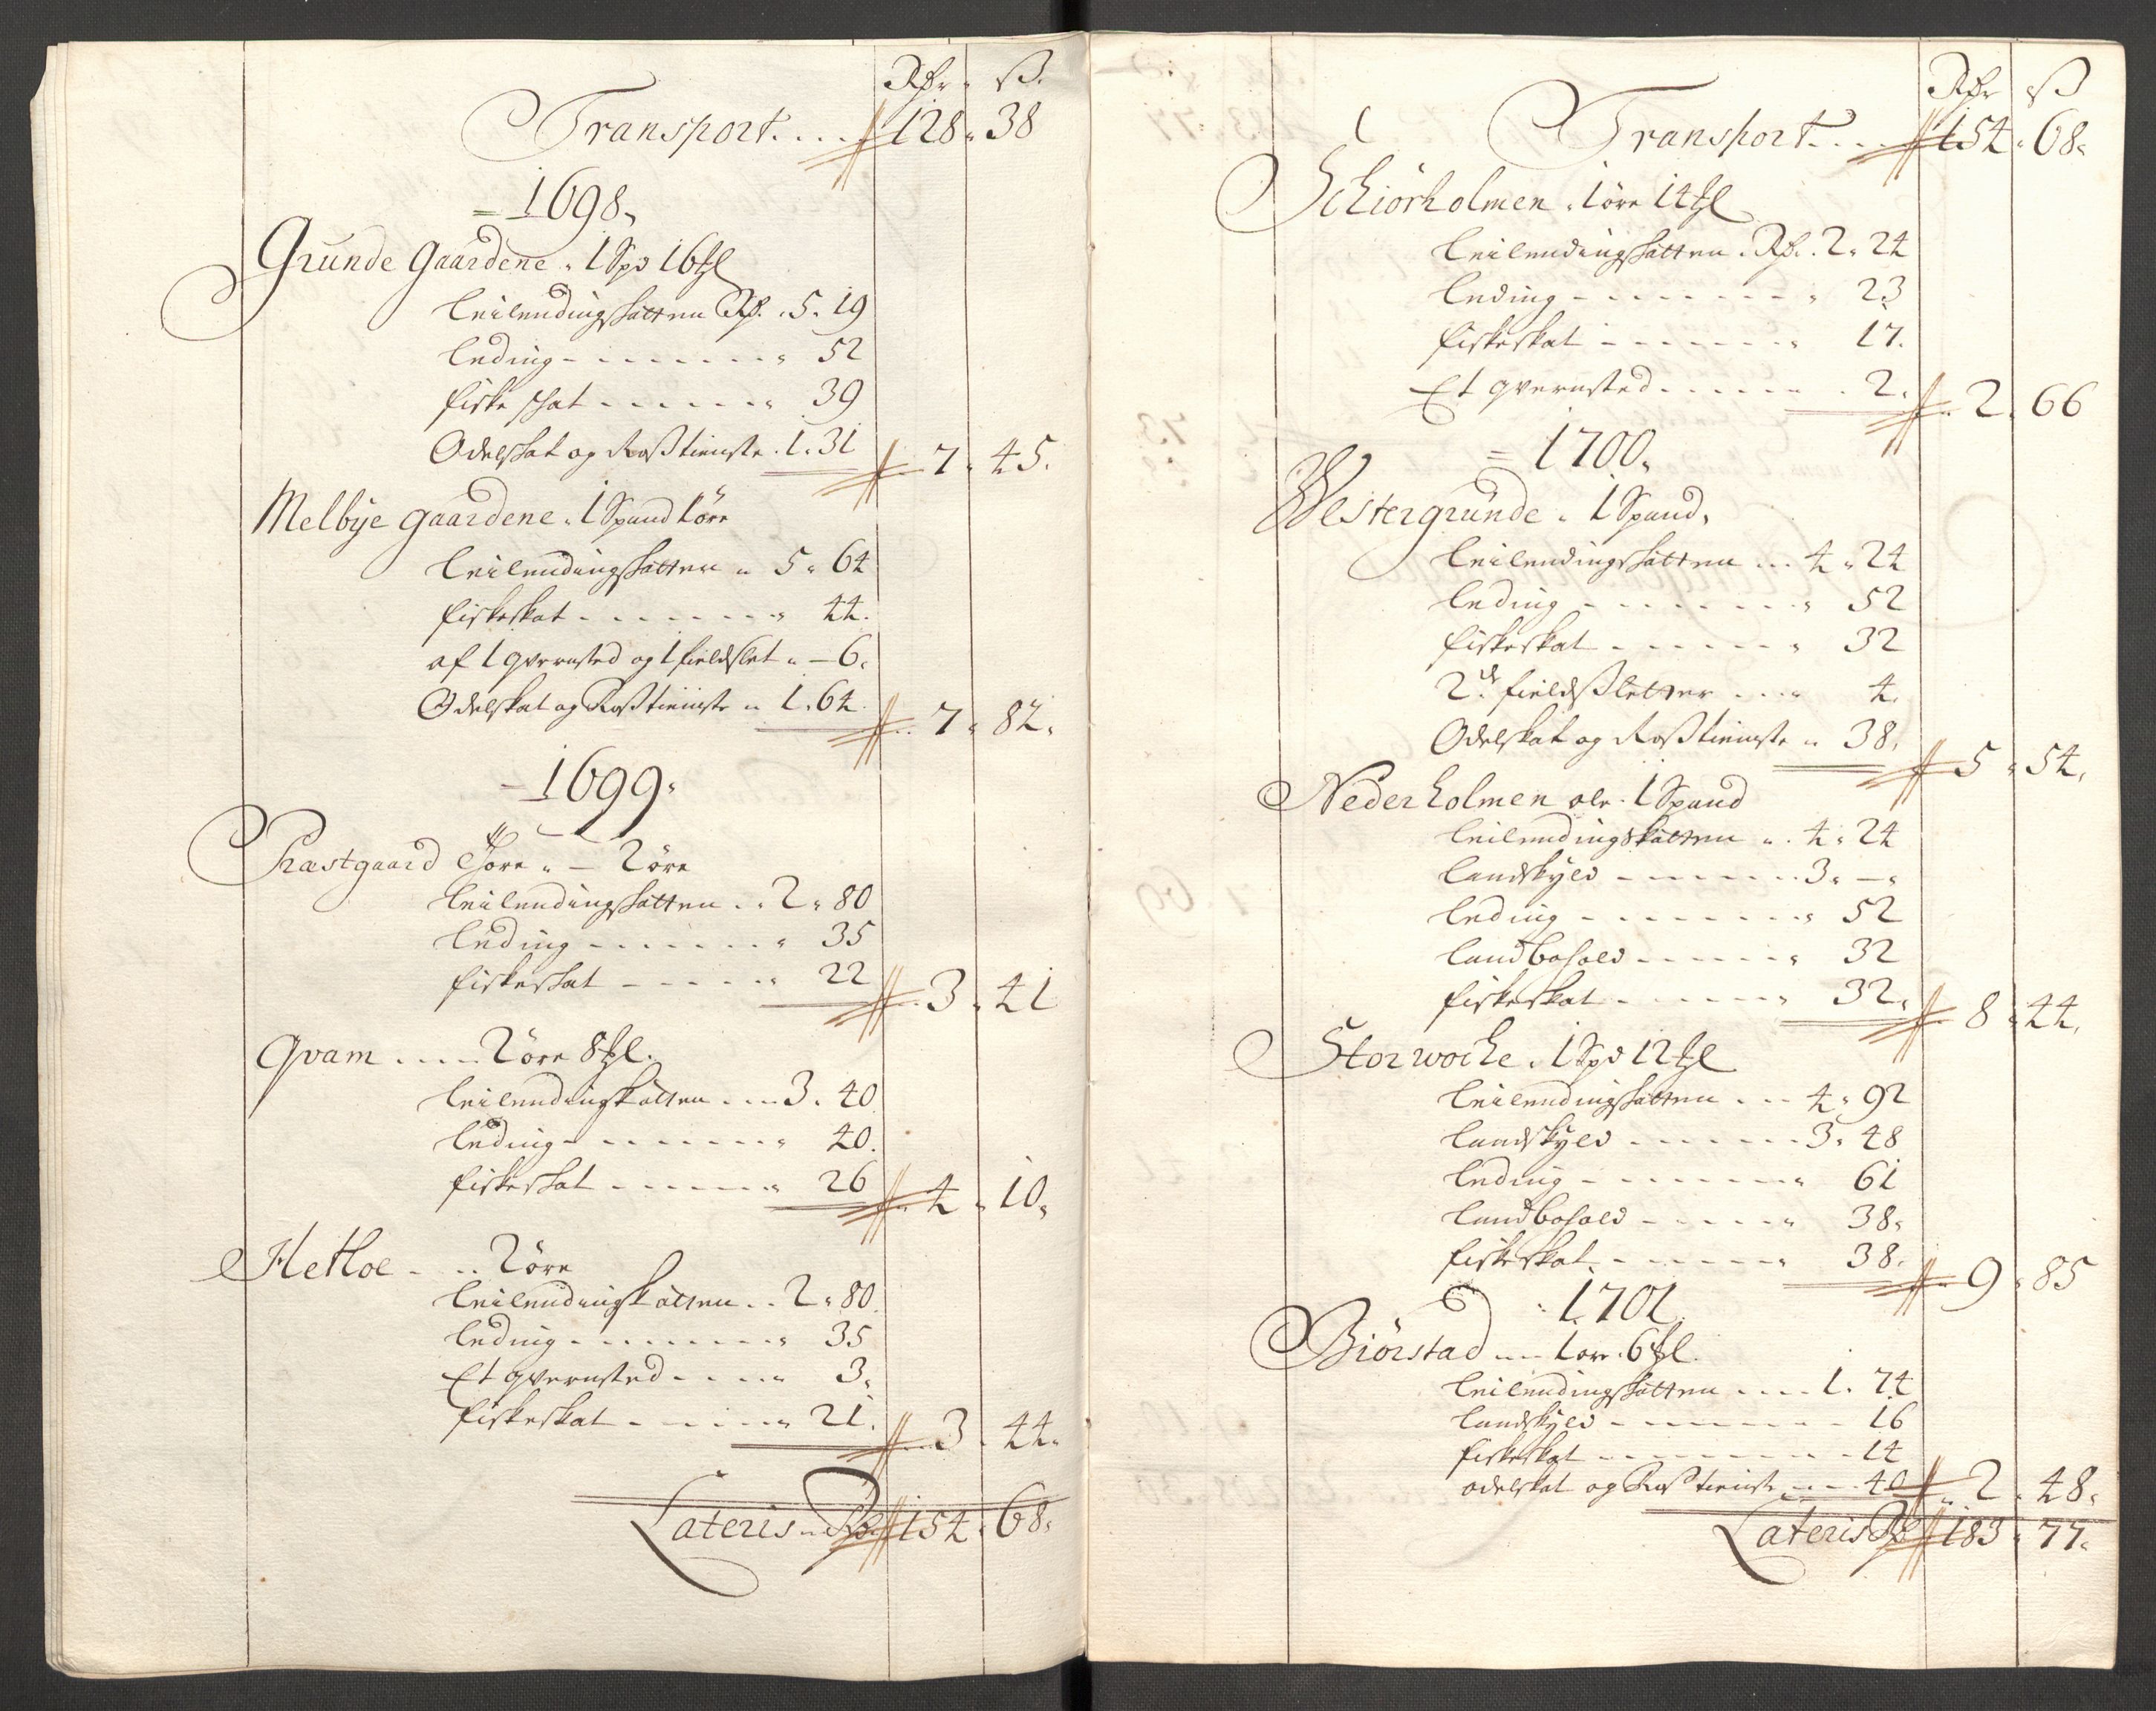 Rdr. ß.
Transport . . . 128 . 38
1698,
Grunde gaardene . 1 Spd 16 ₥l
Leilendingskatten Rdr. 5. 19
Leding - - - - - - - 52
fiske skat - - - - - - 39
Odelskat og Rosstieniste . 1. 31 7 . 45.
Melbÿe gaardene . 1 Spand 1 øre
Leilendingskatten . 5. 64
fiskeskat - - - - - - - 44.
af 1 qvernsted og 1 fieldslet . - 6.
Odelskat og Rosstieniste . 1. 64 7 . 82.
1699.
Præstgaard Fore . - 2 øre
Leilendingskatten . . 2. 80
Leding - - - - - - - 35
fiskeskat - - - - - 22 3 . 41
Qvam . . . . 2 øre 8 ₥l.
Leilendingskatten . . . 3. 40
Leding - - - - - - - 40.
fiskeskat - - - - - - 26 4 . 10,
Hetloe - . . 2 øre
Leilendingskatten . . 2. 80.
Leding - - - - - - - 35
Et qvernsted - - - - 3,
fiskeskat - - - - - 21. 3 . 44.
Lateris . Rdr 154 . 68.
Rdr ß
Transport . . . 154 . 68.
Schiørholmen . 1 øre 14 ₥l
Leilendingskatten . Rdr. 2. 24
Leding - - - - - - - 23
fiskeskat - - - - - - 17.
Et qvernsted . . . . . 2. 2 . 66
1700.
Westergrunde . 1 Spand,
Leilendingskatten . . . 4. 24
Leding - - - - - - - 52
fiskeskat - - - - - - 32
2de fieldsletter . . . . 4.
Odelskat og Rosstieniste . 38. 5 . 54,
Nederholmen alr. 1 Spand
Leilendingskatten . . 4. 24
Landskyld - - - - - - 3. -
Leding - - - - - - - 52
Landbohold - - - - - - 32
fiskeskat - - - - - - 32. 8 . 44,
Storwoche . 1 Spd 12 ₥l
Leilendingskatten . . . 4. 92
Landskyld - - - - - - 3. 48
Leding - - - - - - - 61
Landbohold - - - - - 38,
fiskeskat - - - - - - 38. 9 . 85
1701
Biørstad . . . 1 øre. 6 ₥l.
Leilendingskatten . . . . 1. 74
Landskyld - - - - - - - 16
fiskeskat - - - - - - - - 14
odelskat og Rosstieniste . . . 40 2 . 48.
Lateris Rdr 183 . 77.